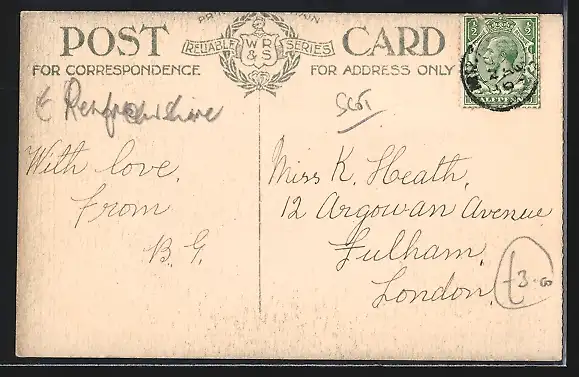 PRINTED IN BRITAIN
POST CARD
RELIABLE WR&S SERIES
FOR CORRESPONDENCE
FOR ADDRESS ONLY
E Renfrewshire
SCOT
With love,
From
B. G.
Miss K. Heath,
12 Argowan Avenue
Fulham,
London,
£3.00
½ ½